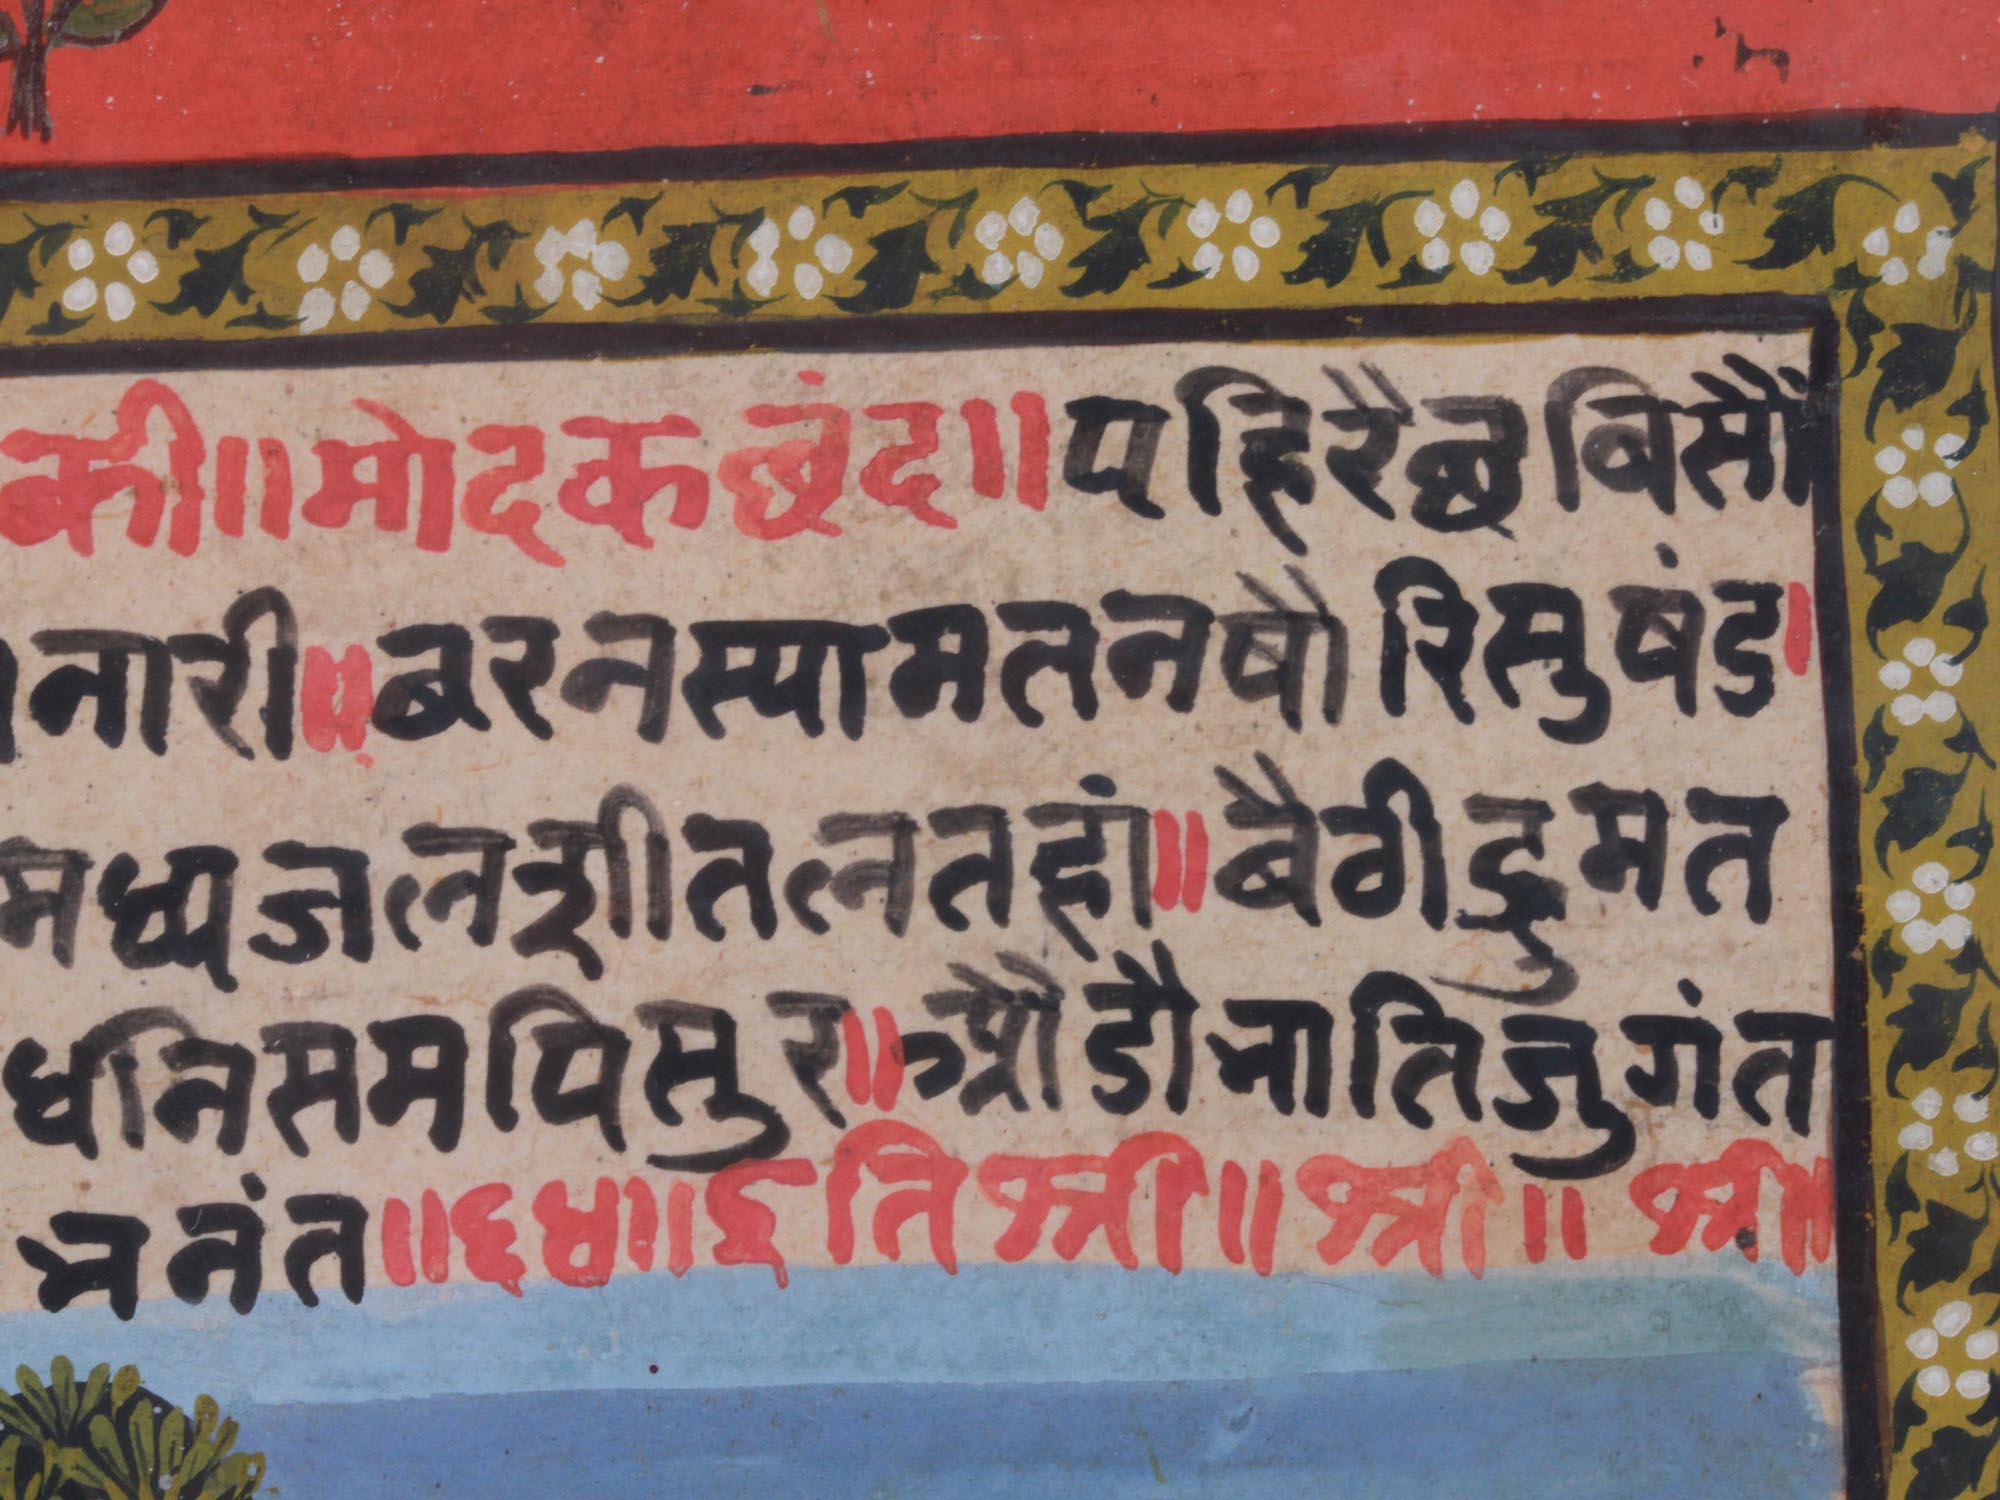 की॥मोदकछंद॥पहिरैछबिसौं
नारी॥बरनस्यामतनषौरिसुषंड।
मध्यजलशीतलतहां॥बैठीद्रुमत
धनिसमपिसुर॥औडौनातिजुगंत
अनंत॥६५॥इतिश्री॥श्री॥श्री॥